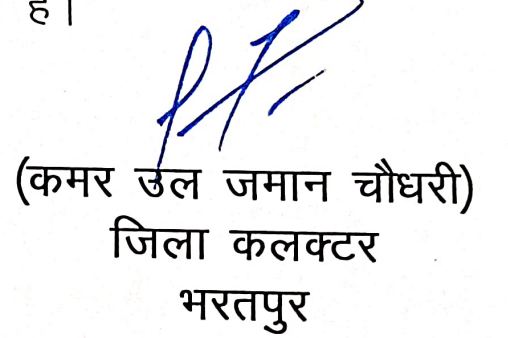 है।
(कमर उल जमान चौधरी)
जिला कलक्टर
भरतपुर